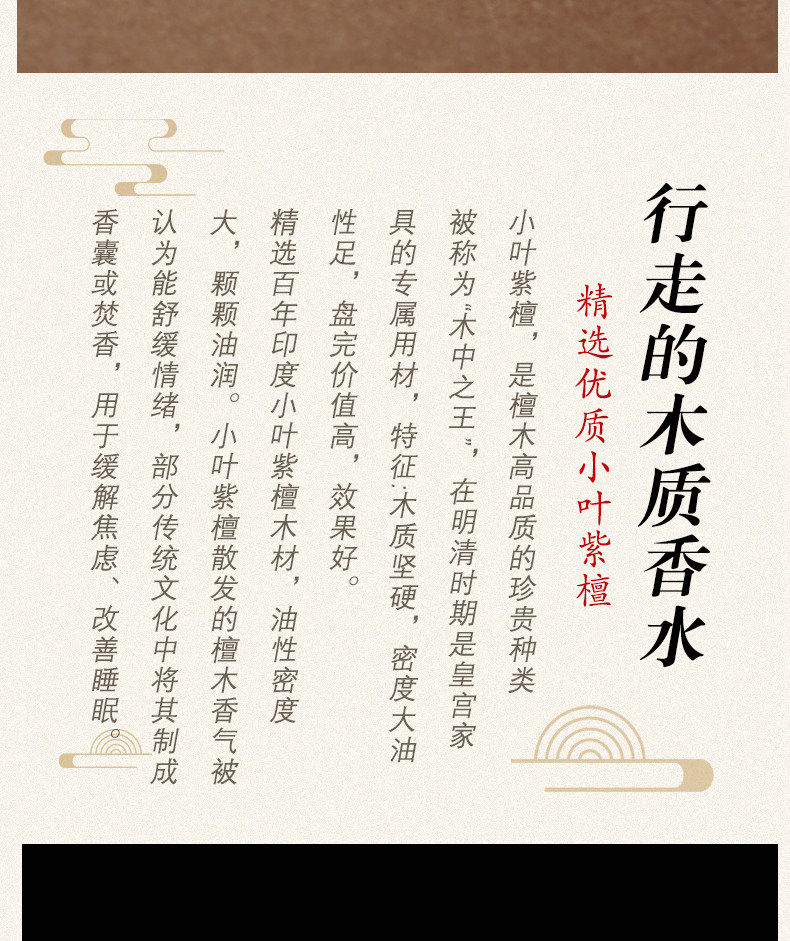 行走的木质香水
精选优质小叶紫檀
小叶紫檀，是檀木高品质的珍贵种类
被称为“木中之王”，在明清时期是皇宫家
具的专属用材，特征:木质坚硬，密度大油
性足，盘完价值高，效果好。
精选百年印度小叶紫檀木材，油性密度
大，颗颗油润。小叶紫檀散发的檀木香气被
认为能舒缓情绪，部分传统文化中将其制成
香囊或焚香，用于缓解焦虑、改善睡眠。